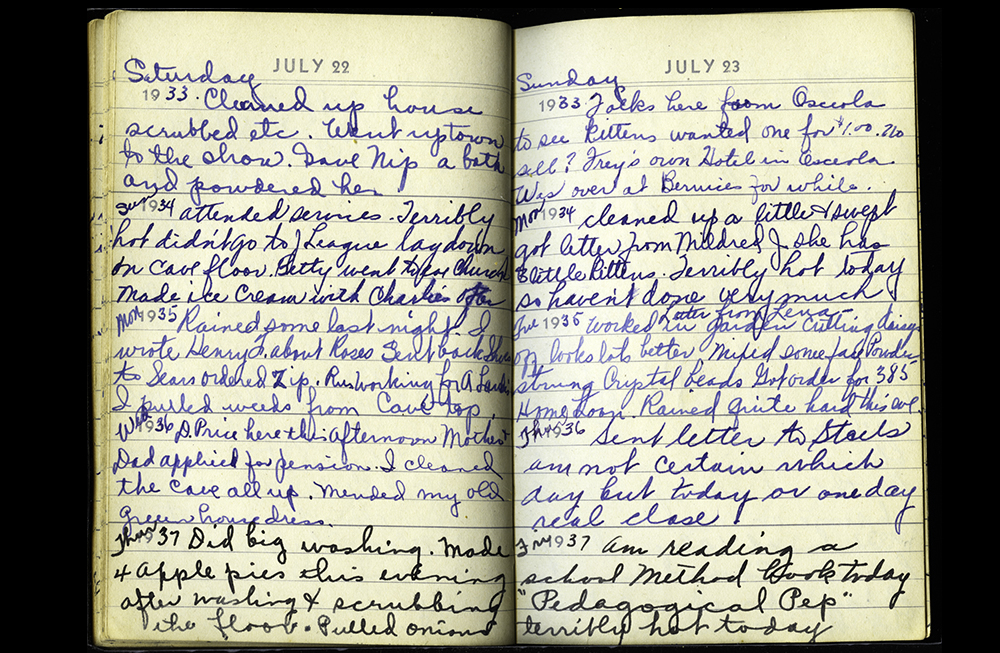 JULY 22
Saturday
1933. Cleaned up house
scrubbed etc. Went uptown
to the show. Gave Nip a bath
and powdered her
Sun 1934 attended services. Terribly
hot didn't go to League lay down
on cave floor. Betty went to Church
Made ice cream with Charlies after
Mon 1935 Rained some last night. I
wrote Henry F. about Roses Sent back Shoes
to Sears ordered Zip. Rus working for A
I pulled weeds from Cave top,
Wed 1936 D. Price here this afternoon Mother
Dad applied for pension. I cleaned
the cave all up. Mended my old
green housedress.
Thurs 1937 Did big washing. Made
4 apple pies this evening
after washing & scrubbing
the floor. Pulled onions
JULY 23
Sunday
1933. Folks here from Osceola
to see Kittens wanted one for $1.00.
sell? Frey's own Hotel in Osceola
Was over at Bernies for while.
Mon 1934 cleaned up a little & swept
got letter from Mildred J. she has
3 little Kittens. Terribly hot today
so haven't done very much
Letter from Lena
Tue 1935 Worked in garden cutting daisys
off looks lots better. Mixed some face Powder
strung Crystal beads Got order for 385
Home Rained quite hard this eve
Thurs 1936 Sent letter to
am not certain which
day but today or one day
real close.
Fri 1937 am reading a
school Method book today
"Pedagogical Pep"
terribly hot today